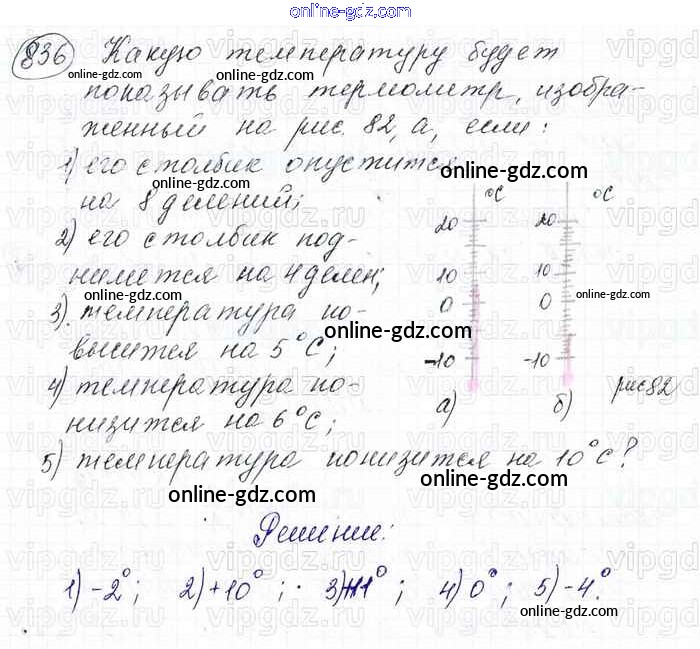 online-gdz.com
836 Какую температуру будет
показывать термометр, изобра-
женный на рис. 82, а, если:
1) его столбик опустится
на 8 делений;
2) его столбик под-
нимется на 4 делен;
3) температура по-
высится на 5°С;
4) температура по-
низится на 6°С;
5) температура понизится на 10°С?
°С °С
20 20
10 10
0 0
-10 -10
а) б) рис 82
Решение:
1) -2°; 2) +10°; 3) +11°; 4) 0°; 5) -4°.
online-gdz.com
online-gdz.com
online-gdz.com
online-gdz.com
online-gdz.com
online-gdz.com
online-gdz.com
online-gdz.com
online-gdz.com
online-gdz.com
online-gdz.com
online-gdz.com